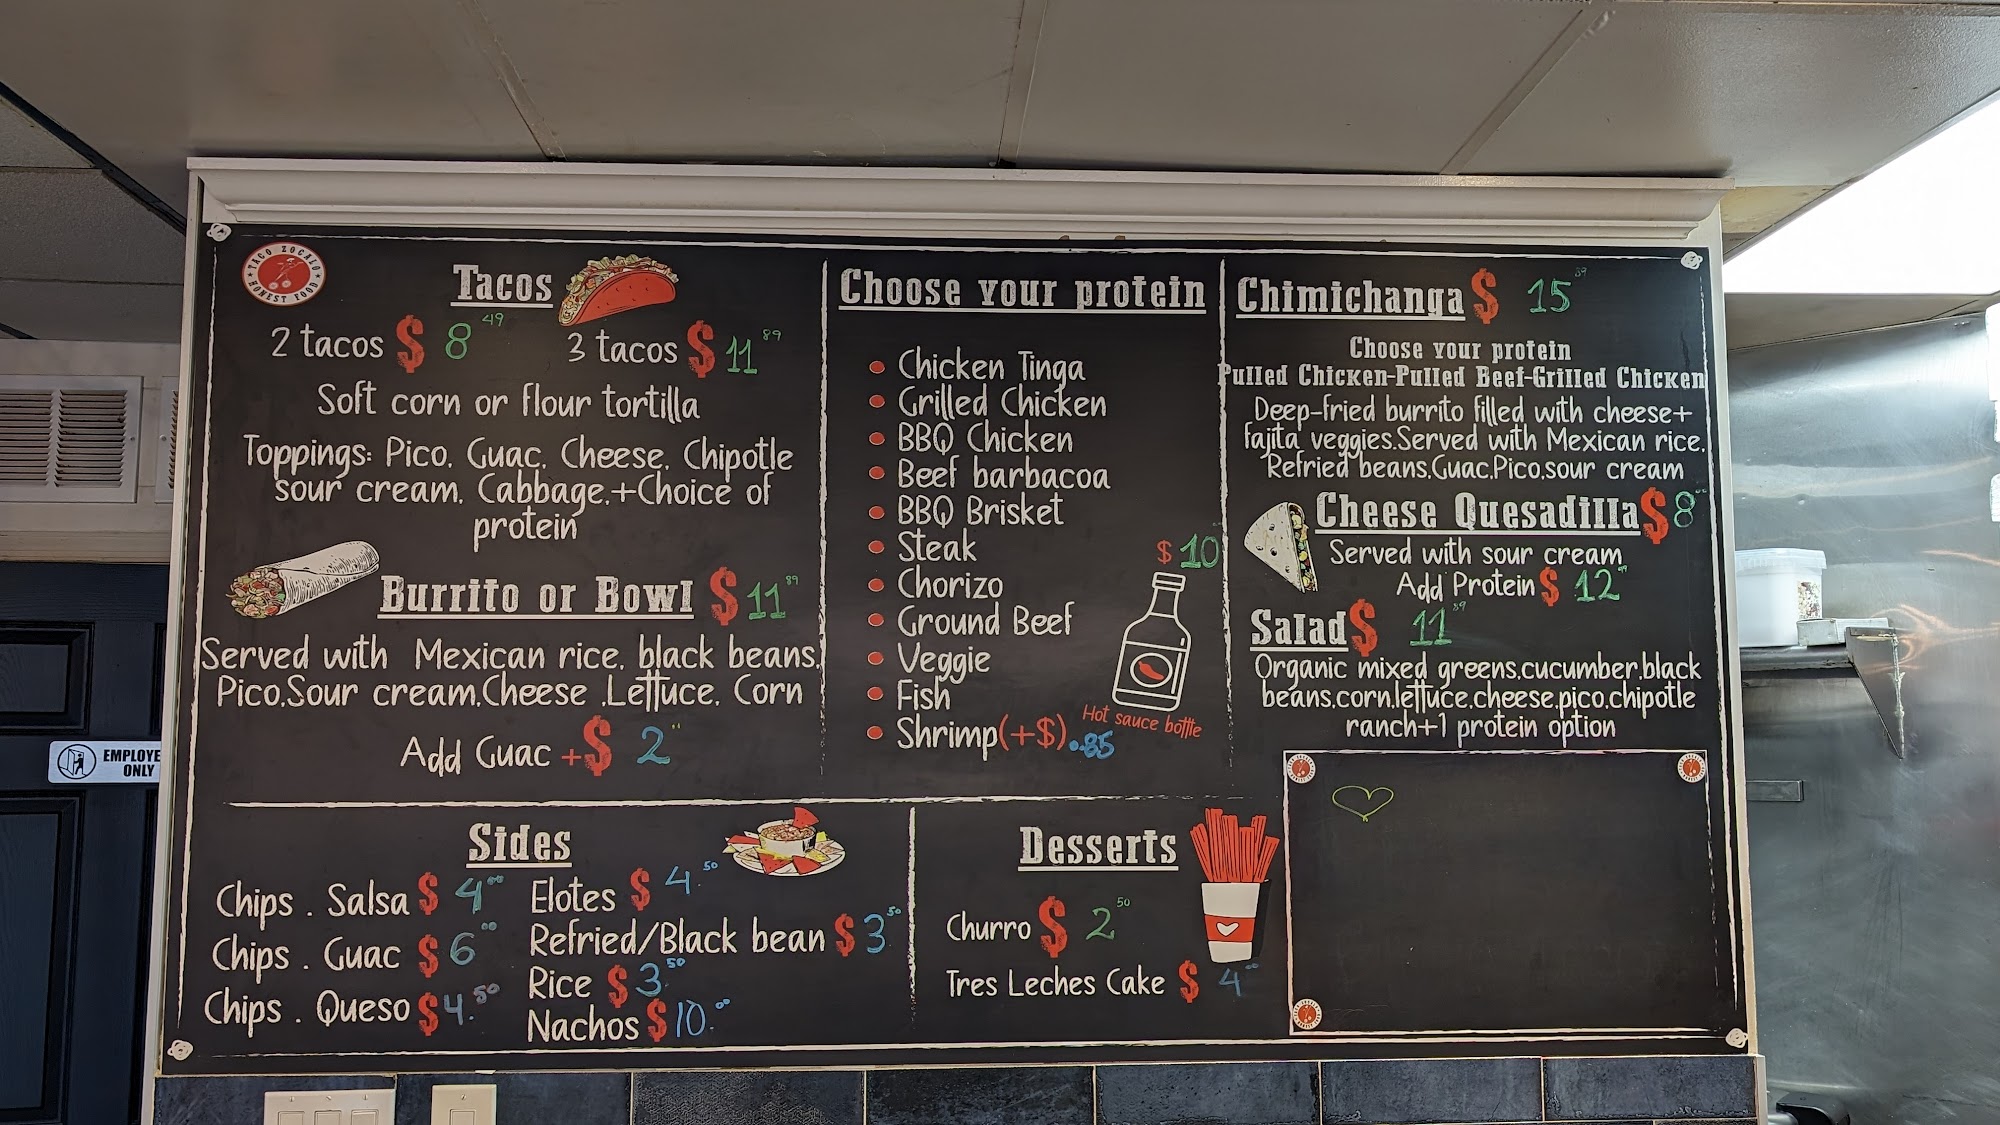 TACO ZOCALO
HONEST FOOD
Tacos
2 tacos $ 8 49
3 tacos $ 11 89
Soft corn or flour tortilla
Toppings: Pico, Guac, Cheese, Chipotle
sour cream, Cabbage,+Choice of
protein
Burrito or Bowl $ 11 89
Served with Mexican rice, black beans,
Pico,Sour cream,Cheese ,Lettuce, Corn
Add Guac +$ 2
Choose your protein
Chicken Tinga
Grilled Chicken
BBQ Chicken
Beef barbacoa
BBQ Brisket
Steak
Chorizo
Ground Beef
Veggie
Fish
Shrimp(+$) .85
$ 10
Hot sauce bottle
Chimichanga $ 15 89
Choose your protein
Pulled Chicken-Pulled Beef-Grilled Chicken
Deep-fried burrito filled with cheese+
fajita veggies.Served with Mexican rice,
Refried beans,Guac,Pico,sour cream
Cheese Quesadilla $ 8
Served with sour cream
Add Protein $ 12
Salad $ 11 89
Organic mixed greens,cucumber,black
beans,corn,lettuce,cheese,pico,chipotle
ranch+1 protein option
Sides
Chips . Salsa $ 4 00
Chips . Guac $ 6 00
Chips . Queso $ 4.50
Elotes $ 4.50
Refried/Black bean $ 3 50
Rice $ 3 50
Nachos $ 10.00
Desserts
Churro $ 2 50
Tres Leches Cake $ 4
EMPLOYE
ONLY